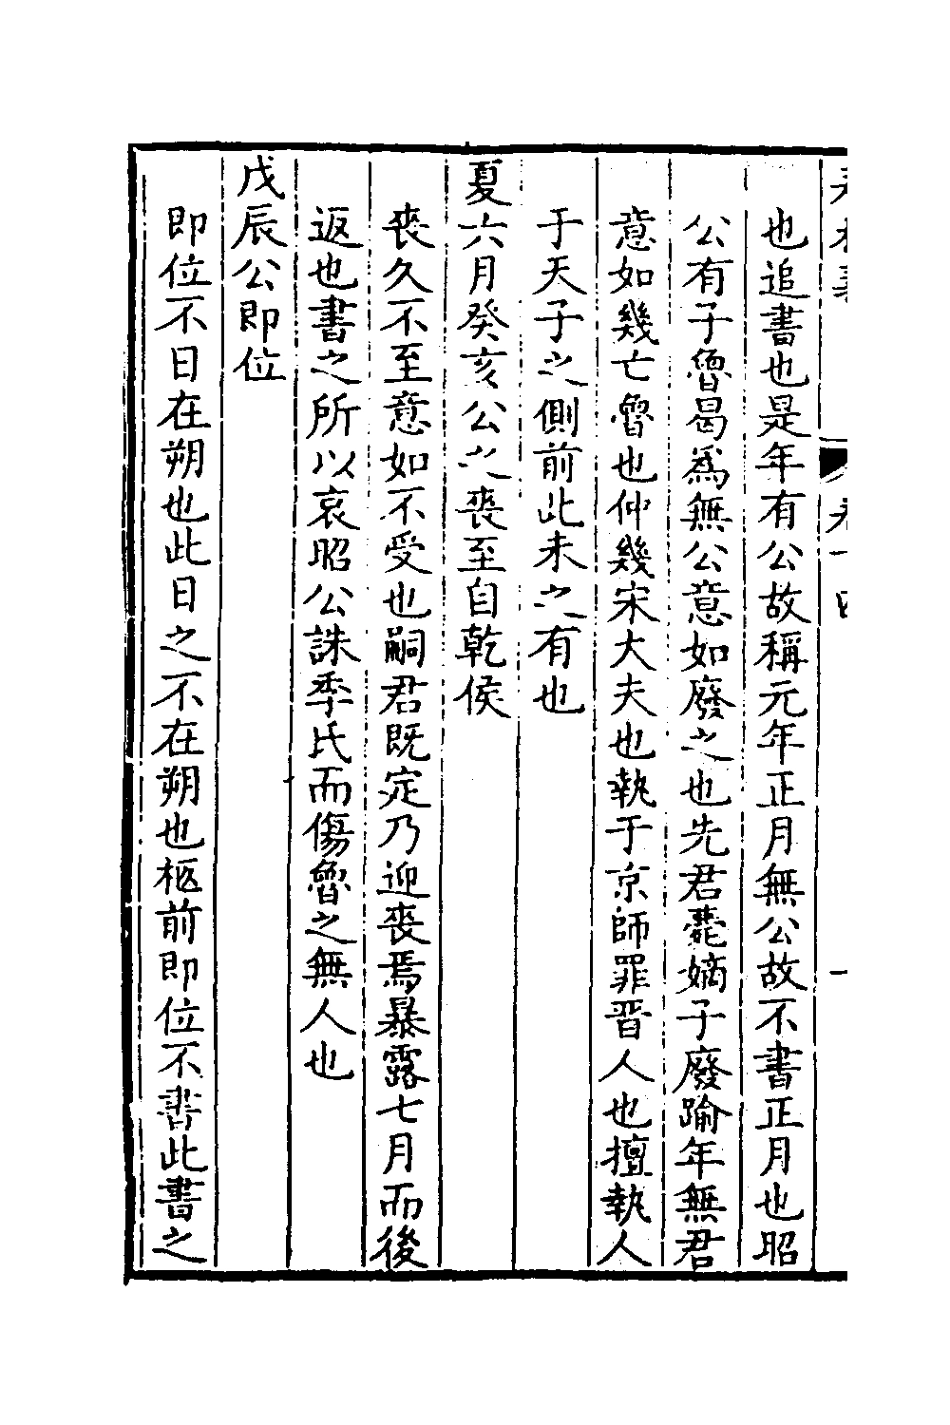 也追書也是年有公故稱元年正月無公故不書正月也昭
公有子魯曷為無公意如廢之也先君薨嫡子廢踰年無君
意如幾亡魯也仲幾宋大夫也執于京師罪晉人也擅執人
于天子之側前此未之有也
夏六月癸亥公之喪至自乾侯
喪久不至意如不受也嗣君既定乃迎喪焉暴露七月而後
返也書之所以哀昭公誅季氏而傷魯之無人也
戊辰公即位
即位不日在朔也此日之不在朔也柩前即位不書此書之